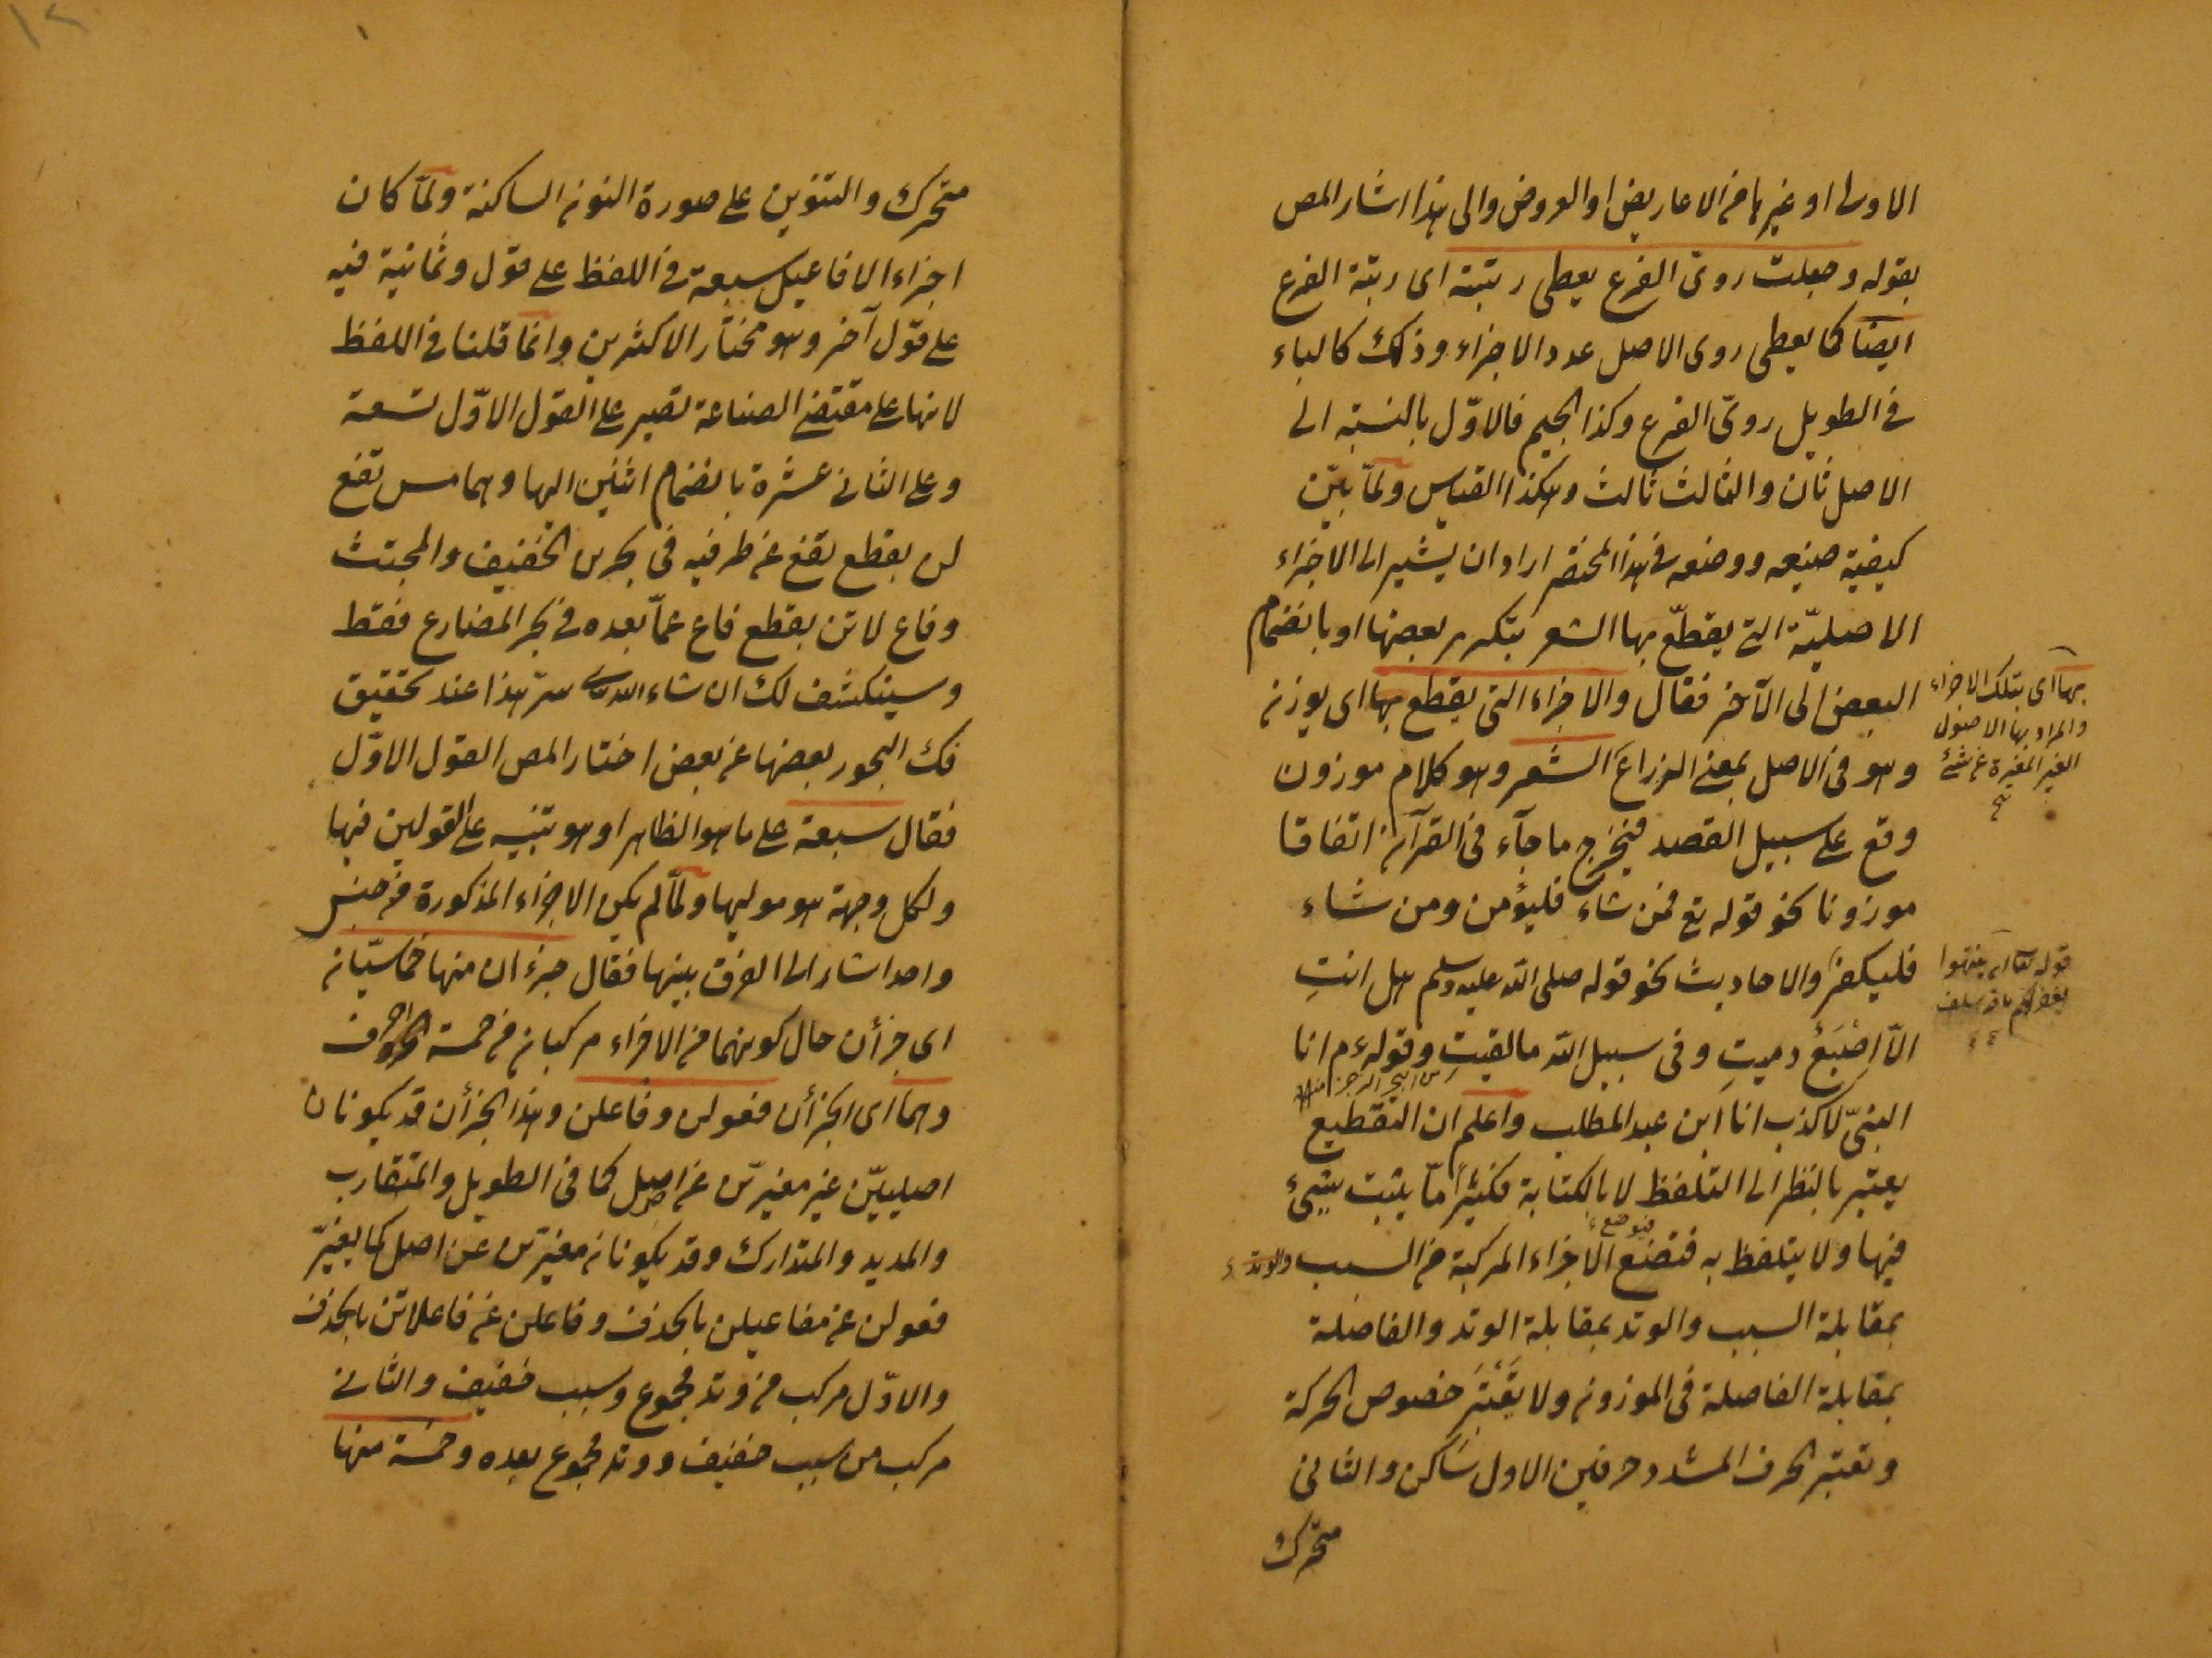 الاولى او غيرها من الاعاريض او العروض والى هذا اشار المص
بقوله وجعلت روىّ الفرع يعطى رتبته اى رتبة الفرع
ايضا كما يعطى روى الاصل عدد الاجزاء وذلك كالباء
فى الطويل روىّ الفرع وكذا الجيم فالاوّل بالنسبة الى
الاصل ثان والثالث ثالث وهكذا القياس ولمّا بيّن
كيفية صنيعه ووضعه فى هذا المختصر اراد ان يشير الى الاجزاء
الاصليّة التى يقطّع بها الشعر بتكرر بعضها او بانضمام
البعض الى الآخر فقال والاجزاء التى يقطع بها اى يوزن
وهو فى الاصل بمعنى الذراع الشعر وهو كلام موزون
وقع على سبيل القصد فيخرج ما جآء فى القرآن اتفاقا
موزونا نحو قوله تع فمن شاء فليؤمن ومن شاء
فليكفر والاحاديث نحو قوله صلى الله عليه وسلم هل انتِ
الّا اِصْبَعٌ دميتِ وفى سبيل الله ما لقيتِ وقوله ءم انا
من البحر الرجز منه
النبىّ لا كذب انا ابن عبد المطلب واعلم ان التقطيع
يعتبر بالنظر الى التلفظ لا بالكتابة فكثيرًا مّا يثبت شئ
فيها ولا يتلفظ به فتضع الاجزاء المركبة من السبب والوتد
فتوضع
بمقابلة السبب والوتد بمقابلة الوتد والفاصلة
بمقابلة الفاصلة فى الموزون ولا يُعْتَبَر خصوص الحركة
وتعتبر الحرف المشدد حرفين الاول ساكن والثانى
متحرّك
بها اى بتلك الاجزاء
والمراد بها الاصول
الغير المغيرة عن شئ
قوله تعا ان ينتهوا
يغفر لهم ما قد سلف
متحرّك والتنوين على صورة النون الساكنة ولمّا كان
اجزاء الافاعيل سبعة فى اللفظ على قول وثمانية فيه
على قول آخر وهو مختار الاكثرين وانما قلنا فى اللفظ
لانها على مقتضى الصناعة تصير على القول الاوّل تسعة
وعلى الثانى عشرة بانضمام اثنين اليها وهما مس تفع
لن بقطع تفع عن طرفيه فى بحرى الخفيف والمجتث
وفاع لاتن بقطع فاع عمّا بعده فى بحر المضارع فقط
وسينكشف لك ان شاء الله تعالى سرّ هذا عند تحقيق
فك البحور بعضها عن بعض اختار المص القول الاوّل
فقال سبعة على ما هو الظاهر او هو تنبيه على القولين فيها
ولكل وجهة هو موليها ولمّا لم يكن الاجزاء المذكورة من جنس
واحد اشار الى الفرق بينها فقال جزءان منها خماسيّان
اى جزأن حال كونهما من الاجزاء مركبان من خمسة احرف
وهما اى الجزأن فعولن وفاعلن وهذا الجزأن قد يكونان
اصليّين غير مغيرّين عن اصل كما فى الطويل والمتقارب
والمديد والمتدارك وقد يكونان مغيرّين عن اصل كما يغيرّ
فعولن عن مفاعيلن بالحذف وفاعلن عن فاعلاتن بالحذف
والاوّل مركب من وتد مجموع وسبب خفيف والثانى
مركب من سبب خفيف ووتد مجموع بعده وخمسة منها